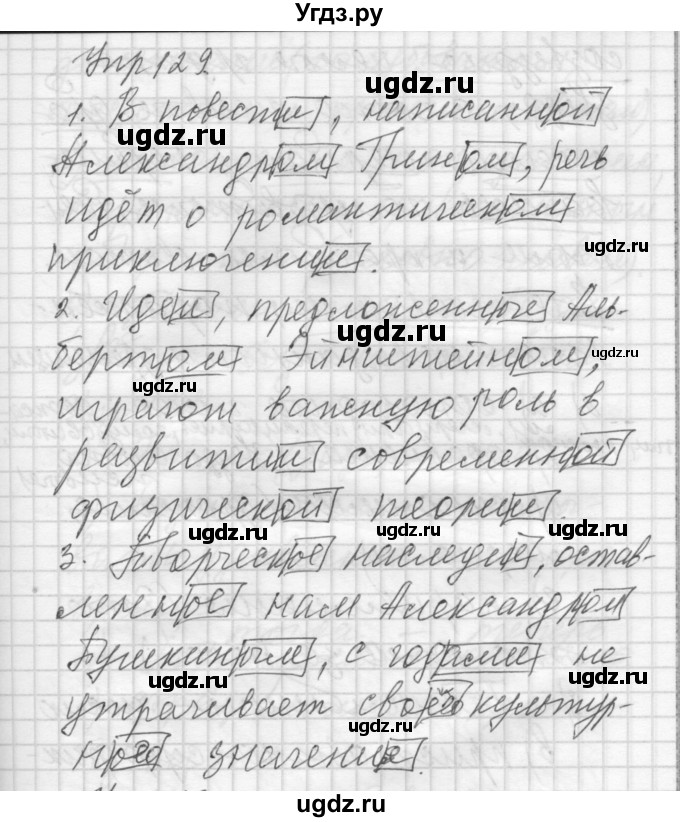 Угдз.ру
Упр 129
ugdz.ru
1. В повести, написанной
ugdz.ru
Александром Грином, речь
ugdz.ru
идёт о романтическом
ugdz.ru
приключении.
2. Идеи, предложенные Аль-
ugdz.ru
бертом Эйнштейном,
ugdz.ru
ugdz.ru
играют важную роль в
развитии современной
ugdz.ru
физической теории.
ugdz.ru
ugdz.ru
3. Творческое наследие, остав-
ugdz.ru
ленное нам Александром
Пушкиным, с годами не
ugdz.ru
утрачивает своего культур-
ugdz.ru
ного значения.
ugdz.ru
ugdz.ru